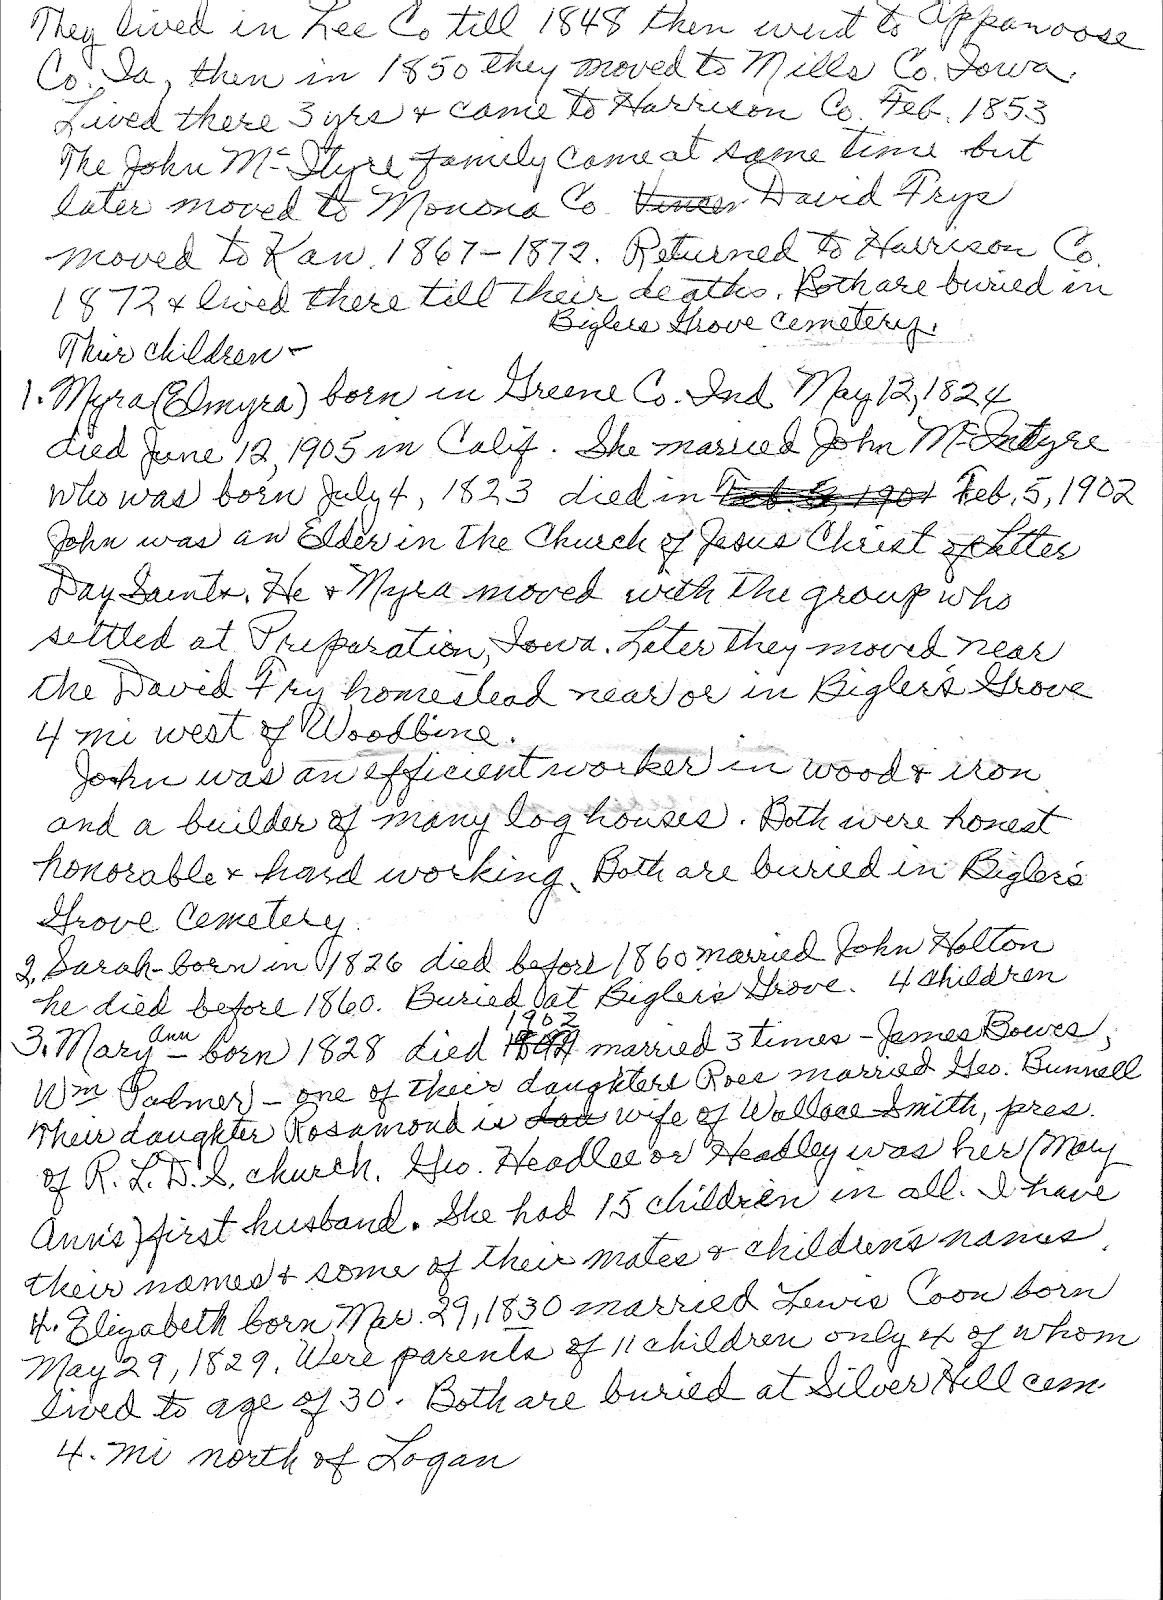 They lived in Lee Co till 1848 then went to Appanoose
Co. Ia, then in 1850 they moved to Mills Co. Iowa.
Lived there 3 yrs & came to Harrison Co. Feb. 1853
The John McItyre family came at same time but
later moved to Monona Co. David Frys
moved to Kan. 1867-1872. Returned to Harrison Co.
1872 & lived there till their deaths. Both are buried in
Biglers Grove cemetery.
Their children-
1. Myra (Elmyra) born in Greene Co. Ind May 12, 1824
died June 12, 1905 in Calif. She married John McIntyre
who was born July 4, 1823 died in Feb. 5, 1901 Feb. 5, 1902
John was an Elder in the Church of Jesus Christ of Latter
Day Saints. He & Myra moved with the group who
settled at Preparation, Iowa. Later they moved near
the David Fry homestead near or in Bigler's Grove
4 mi west of Woodbine.
John was an efficient worker in wood & iron
and a builder of many log houses. Both were honest
honorable & hard working. Both are buried in Bigler's
Grove Cemetery.
2. Sarah - born in 1826 died before 1860 married John Holton
he died before 1860. Buried at Bigler's Grove. 4 children
3. Mary Ann - born 1828 died 1902 married 3 times - James Bowes,
Wm Palmer - one of their daughters Roes married Geo. Bunnell
Their daughter Rosamond is wife of Wallace Smith, pres.
of R.L.D.S. church. Geo. Headlee or Headley was her (Mary
Ann's) first husband. She had 15 children in all. I have
their names & some of their mates & children's names.
4. Elizabeth born Mar. 29, 1830 married Lewis Coon born
May 29, 1829. Were parents of 11 children only 4 of whom
lived to age of 30. Both are buried at Silver Hill cem.
4. mi north of Logan